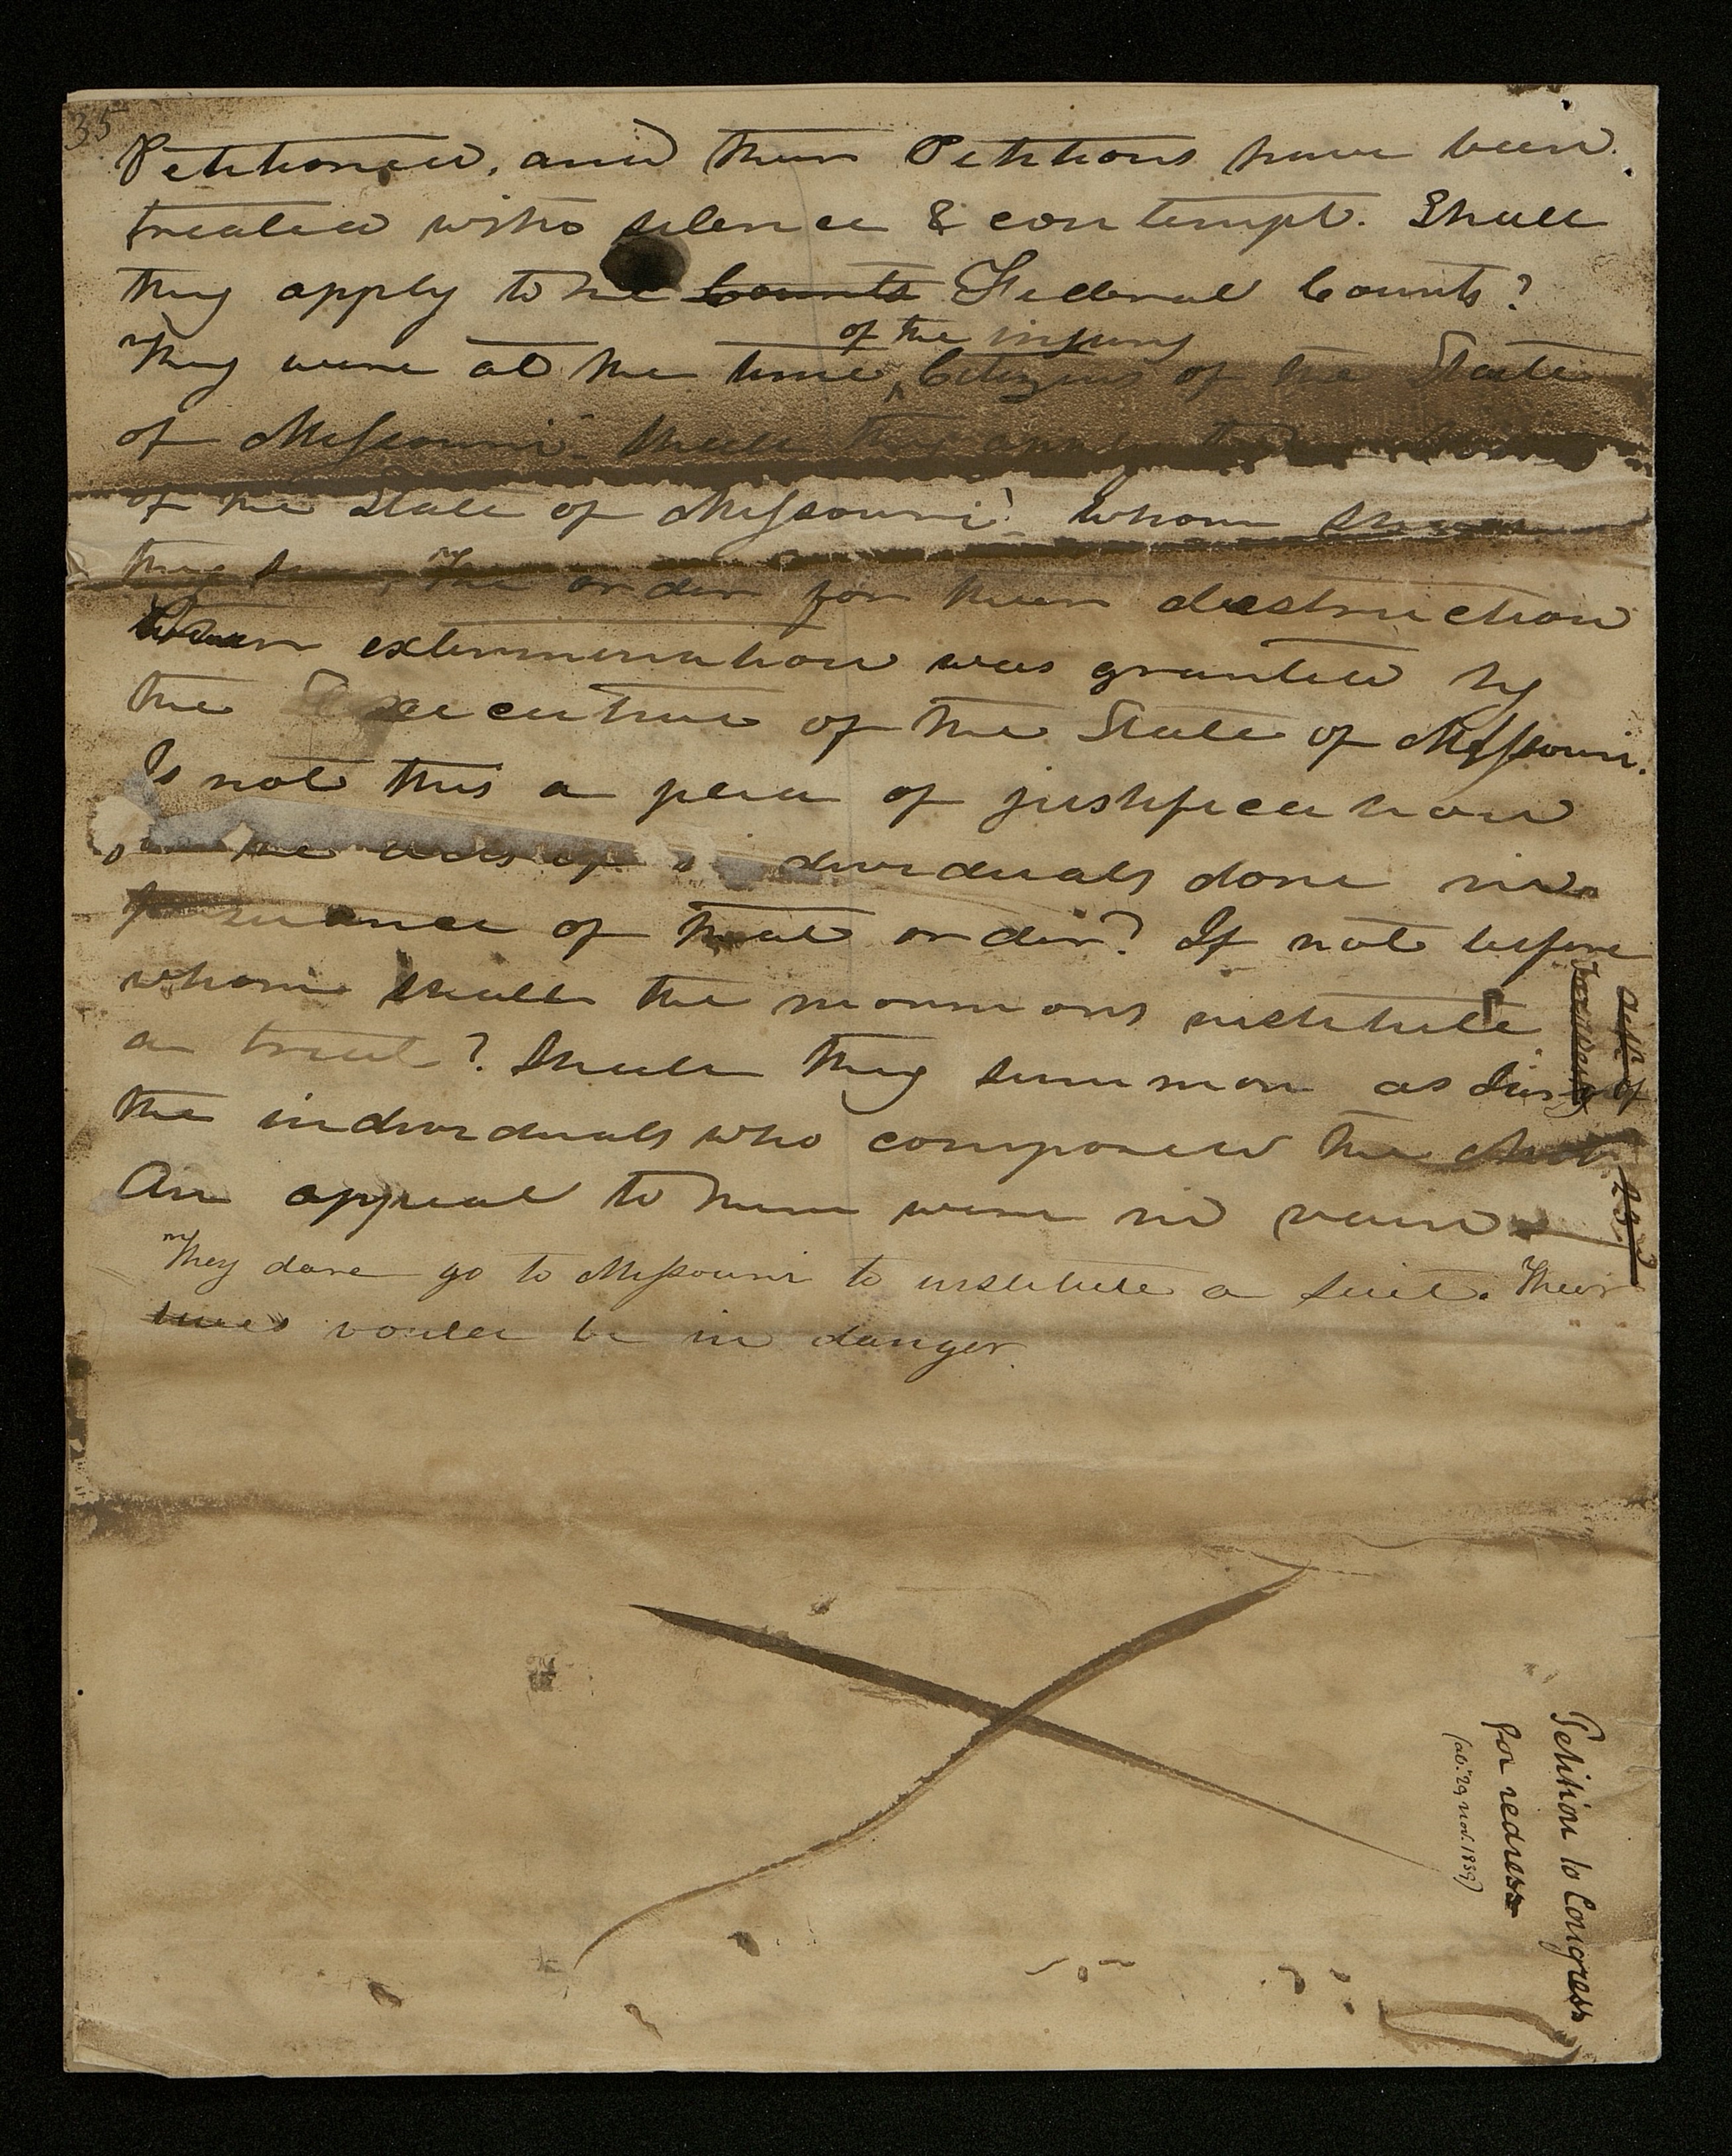 35
Petitioned, and their Petitions have been
treated with silence & contempt. Shall
they apply to the Courts Federal Courts?
of the injury
They were at the time Citizens of the State
of Missouri. Shall they apply to the Courts
of the State of Missouri? Whom shall
they sue, The order for their destruction
extermination was granted by
the Executive of the State of Missouri.
Is not this a plea of justification
for the acts of individuals done in
pursuance of that order? If not before
whom shall the mormons institute
a trial? Shall they summon as Jury
the individuals who composed the Mob,
An appeal to them were in vain.
They dare go to Missouri to institute a suit. Their
lives would be in danger.
Petition to Congress
for redress
(ab. 29 Nov. 1839)